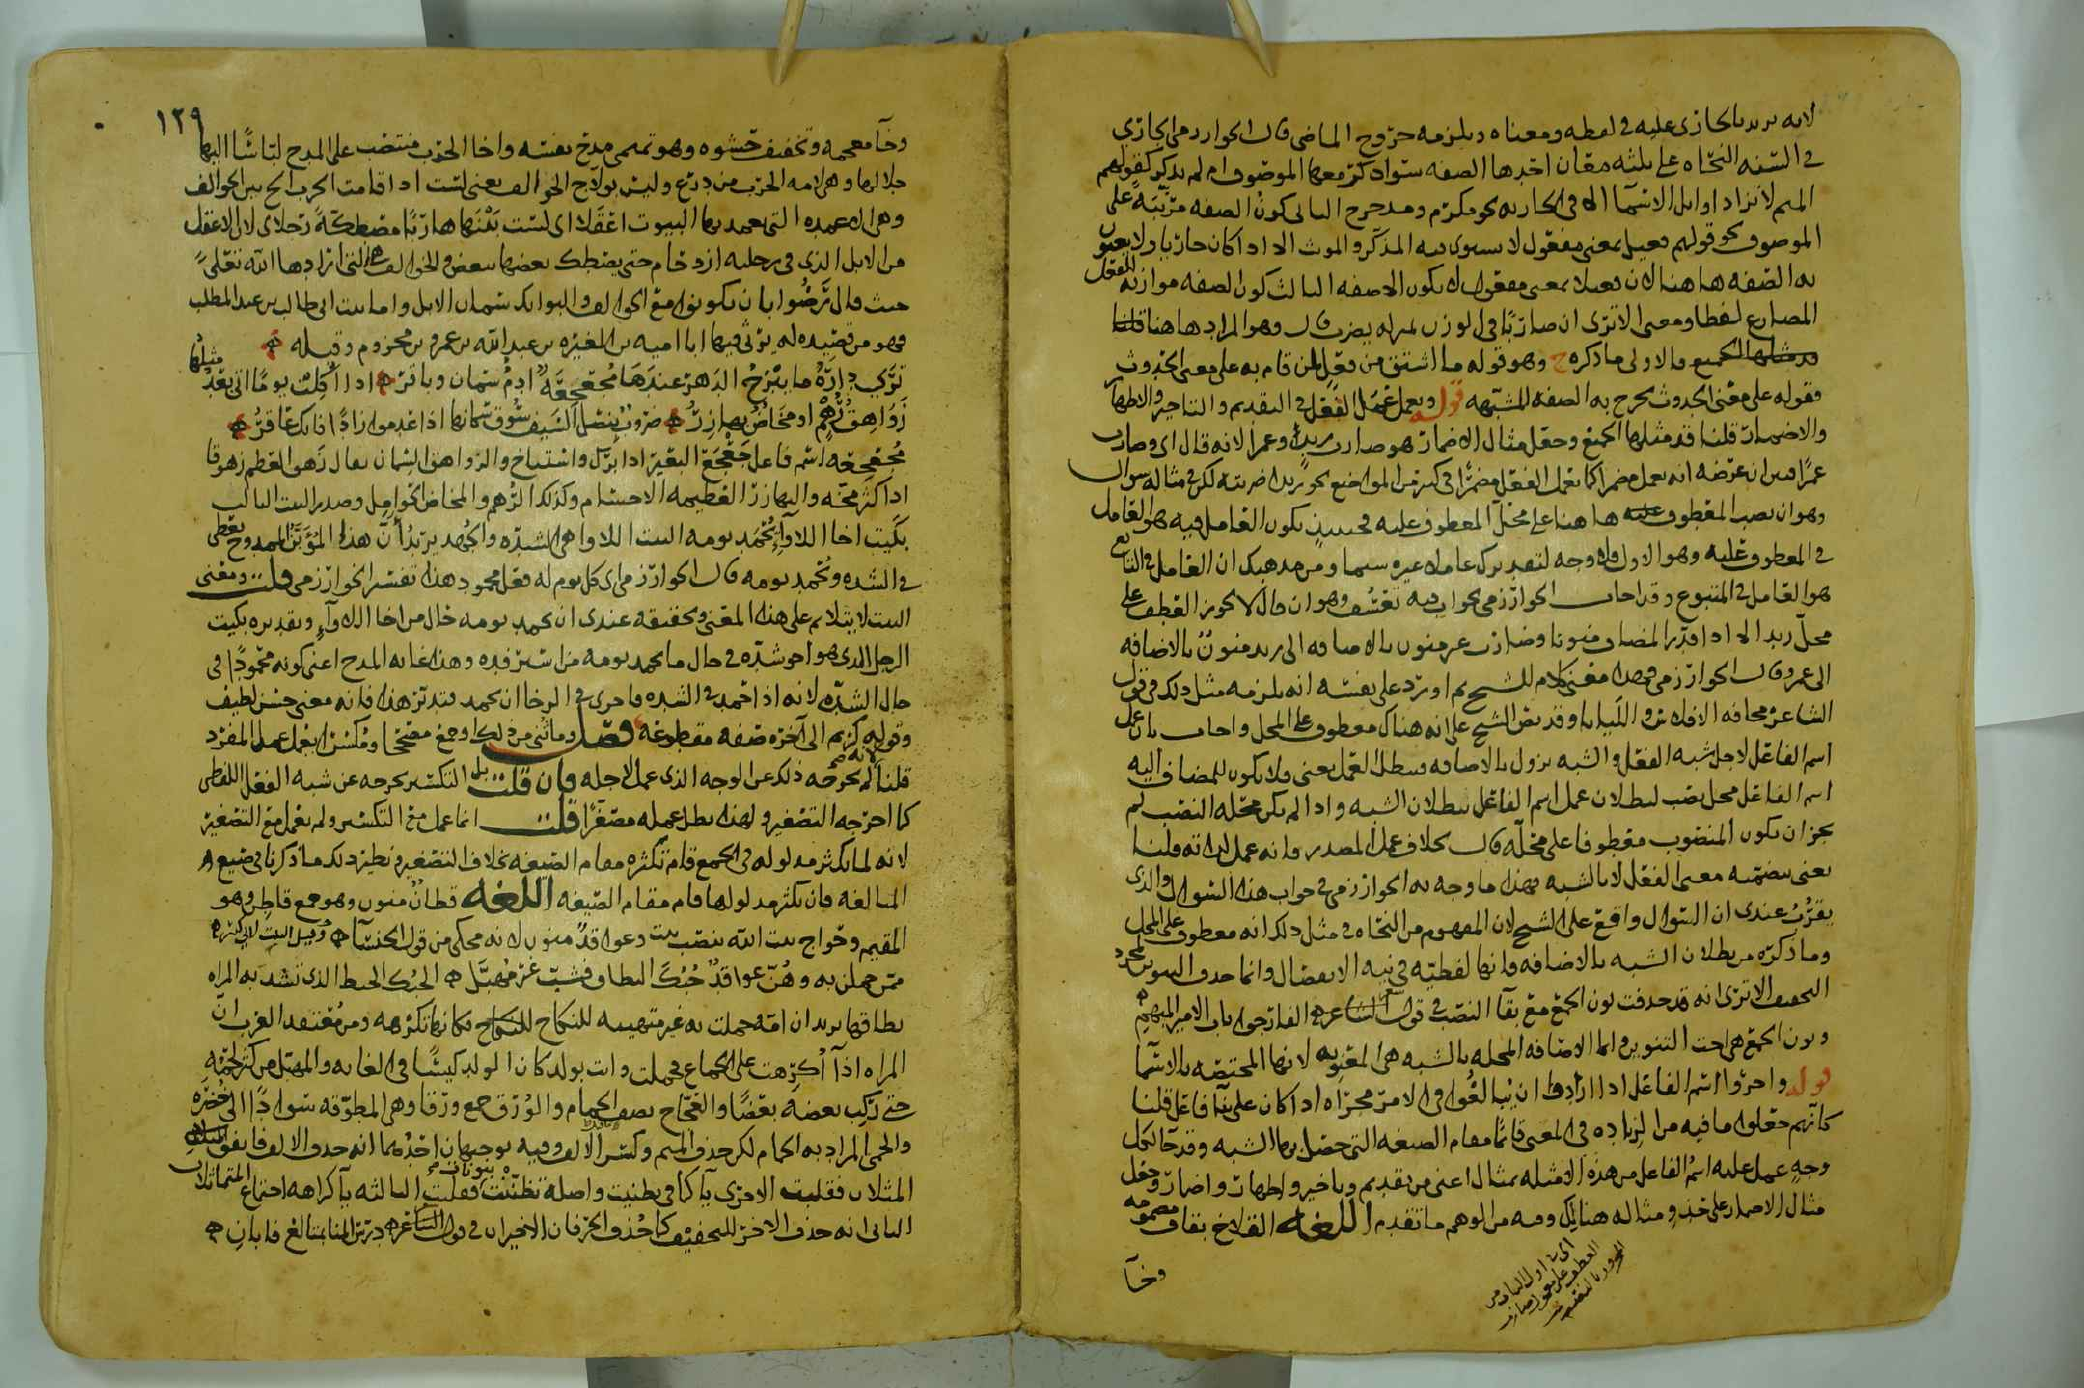 لانه يريد بالجاري عليه في لفظه ومعناه ويلزمه خروج الماضي قال الخوارزمي الجاري
في السنه النحاه على ثلثه معان احدها الصفه سوا ذكر معها الموصوف ام لم يذكر كقولهم
الميم لا تزاد اوايل الاسما الا في الجاريه نحو مكرم ومدحرج الثاني كون الصفه مرتبه على
الموصوف نحو قولهم فعيل بمعنى مفعول لا يستوي فيه المذكر والمونث الا اذا كان جاريا ولا يعنون
به الصفه هاهنا لان فعيلا بمعنى مفعول لا يكون الا صفه الثالث كون الصفه موازنه للفعل
المضارع لفظا ومعنى الا ترى ان ضاربا في الوزن بمنزله يضرب قال وهو المراد هاهنا قلنا
الجميع والاولى ما ذكره ج وهو قوله ما اشتق من فعل لمن قام به على معنى الحدوث
فقوله على معنى الحدوث يخرج به الصفه المشبهه قوله ويعمل عمل الفعل في التقديم والتاخير والاظهار
والاضمار قلنا قد مثلها اجمع وجعل مثال الاضمار هو ضارب زيد وعمرا لانه قال اي وضارب
عمرا فبين ان غرضه انه يعمل مضمرا كما يعمل الفعل مضمرا في كثير من المواضع نحو زيدا ضربته لكن في مثاله سوال
وهو ان نصب المعطوف هاهنا على محل المعطوف عليه فحينئذ يكون العامل فيه هو العامل
في المعطوف عليه وهو الاول ولا وجه لتقدير عامل غيره سيما ومن مذهبك ان العامل في التابع
هو العامل في المتبوع وقد اجاب الخوارزمي بجواب فيه تعسف وهو ان قال لا يجوز العطف على
محل زيد الا اذا قدر المضاف منونا وضارب غير منون بالاضافه الى زيد منون بالاضافه
الى عمرو قال الخوارزمي فهذا معنى كلام الشيخ ثم اورد على نفسه انه يلزمه مثل ذلك في قول
الشاعر مخافه الافلاس والليانا وقد نص الشيخ على انه هناك معطوف على المحل واجاب بان عمل
اسم الفاعل لاجل شبه الفعل والشبه يزول بالاضافه فيبطل العمل يعني فلا يكون للمضاف اليه
اسم الفاعل محل نصب لبطلان عمل اسم الفاعل ببطلان الشبه واذا لم يكن محله النصب لم
يجز ان يكون المنصوب معطوفا على محله قال بخلاف عمل المصدر فانه عمل لذاته قلنا
يعني بتضمنه معنى الفعل لا بالشبه فهذا ما وجه به الخوارزمي في جواب هذا السوال والذي
يقرب عندي ان السوال واقع على الشيخ لان المفهوم من النحاه في مثل ذلك انه معطوف على المحل
وما ذكره من بطلان الشبه بالاضافه فانها لفظيه في نيه الانفصال وانما حذف التنوين لمجرد
التخفيف الا ترى انه قد حذفت نون الجمع مع بقا النصب في قول الشاعر ه الفارجوا باب الامير المبهم ه
ونون الجمع هي اخت التنوين وانما الاضافه المخله بالشبه هي المعنويه لانها المختصه بالاسما
قوله واجروا اسم الفاعل اذا ارادوا ان يبالغوا في الامر مجراه اذا كان على بنا فاعل قلنا
كانهم جعلوا ما فيه من الزياده في المعنى قائما مقام الصيغه التي حصل بها الشبه وقد جا لكل
وجه عمل عليه اسم الفاعل من هذه الامثله مثال اعني من تقديم وتاخير واظهار واضمار وجعل
مثال الاضمار على حذو مثاله هنالك وفيه من الوهم ما تقدم اللغه القلاخ بقاف مضمومه
وخآ
وخآ معجمه وتخفيف حشوه وهو تميمي مدح نفسه واخا الحرب منتصب على المدح لباسا اليها
جلالها وهي لامه الحرب من درع وليس بولاج الخوالف يعني لست اذا قامت الحرب الج بين الخوالف
وهي الاعمده التي يعمد بها البيوت اعقلا اي لست بفنائها هاربا مضطكه رجلاي لان الاعقل
من الابل الذي في رجليه ازدحام حتى يصطك بعضها ببعض والخوالف هي التي ارادها الله تعالى
حيث قال رضوا بان يكونوا مع الخوالف والبوايك سمان الابل واما بيت ابي طالب بن عبد المطلب
فهو من قصيده له يرثي فيها ابا اميه بن المغيره بن عبد الله بن عمرو بن مخزوم وقبله ه
ترى داره ما يبرح الدهر عندها مجعجعه ادم سمان وباقر ه اذا اكلت يوما اتى بعد مثلها
زواهق زهم او مخاض بهازر ه ضروب بنصل السيف سوق سمانها اذا عدموا زادا فانك عاقر ه
مجعجعه اسم فاعل جعجع البعير اذا برك واستناخ والزواهق السمان يقال زهق العظم زهوقا
اذا كثر مخه والبهازر العظيمه الاجسام وكذلك الزهم والمخاض الحوامل وصدر البيت الثالث
بكيت اخا اللاوآء يحمد يومه البيت اللاوا هي الشده والجهد يريد ان هذا المؤبن الممدوح يعطي
في الشده ويحمد يومه قال الخوارزمي اي كل يوم له فعل محمود هذا تفسير الخوارزمي قلت ومعنى
البيت لا يتلايم على هذا المعنى وتحقيقه عندي ان يحمد يومه حال من اخا اللاوآء وتقديره بكيت
الرجل الذي هو اخو شده في حال ما يحمد يومه من اسرفده وهذا غايه المدح اعني كونه محمودا في
حال الشده لانه اذا احمد في الشده فاحرى في الرخا ان يحمد فتدبر هذا فانه معنى حسن لطيف
وقوله كريم الى آخره صفه مقطوعه فصل وما ثني من ذلك او جمع مصححا او مكسرا يعمل عمل المفرد
قلنا لانه لم يخرجه ذلك عن الوجه الذي عمل لاجله فان قلت بلى التكسير يخرجه عن شبه الفعل اللفظي
كما اخرجه التصغير ولهذا بطل عمله مصغرا قلت انما عمل مع التكسير ولم يعمل مع التصغير
لانه لما يكثر مدلوله في الجمع قام تكثره مقام الصيغه بخلاف التصغير ونظير ذلك ما ذكرنا في صيغ
المبالغه فان تكثر مدلولها قام مقام الصيغه اللغه قطان منون وهو جمع قاطن وهو
المقيم وحواج بيت الله بنصب بيت وعواقد منون لانه محكي من قول الخنسآ ه وقيل البيت لابي كبير ه
ممن حملن به وهن عواقد حبك النطاق فشب غير مهبل ه الحبك الخيط الذي تشد به المراه
نطاقها يريد ان امه حملت به غير متهييه للنكاح فكانها تكرهه ومن معتقد العرب ان
المراه اذا اكرهت على الجماع فحملت واتت بولد كان الولد كيسا في الغايه والمهبل من كثر لحمه
حتى ركب بعضه بعضا والعجاج يصف الحمام والورق جمع ورقا وهي المطوقه سوادا الى خضره
والحمي المراد به الحمام لكن حذف الميم وكسر الالف وفيه توجيهان احدهما انه حذف الالف فاتفق
المثلان فقلبت الاخرى يآ كما في تظنيت واصله تظننت بنونات فقلبت الثالثه يآ كراهه اجتماع المتماثلات
الثاني انه حذف الاخر للتخفيف كما حذف الحرفان الاخيران في قول الشاعر ه درس المنا بمتالع فابان ه
١٢٩